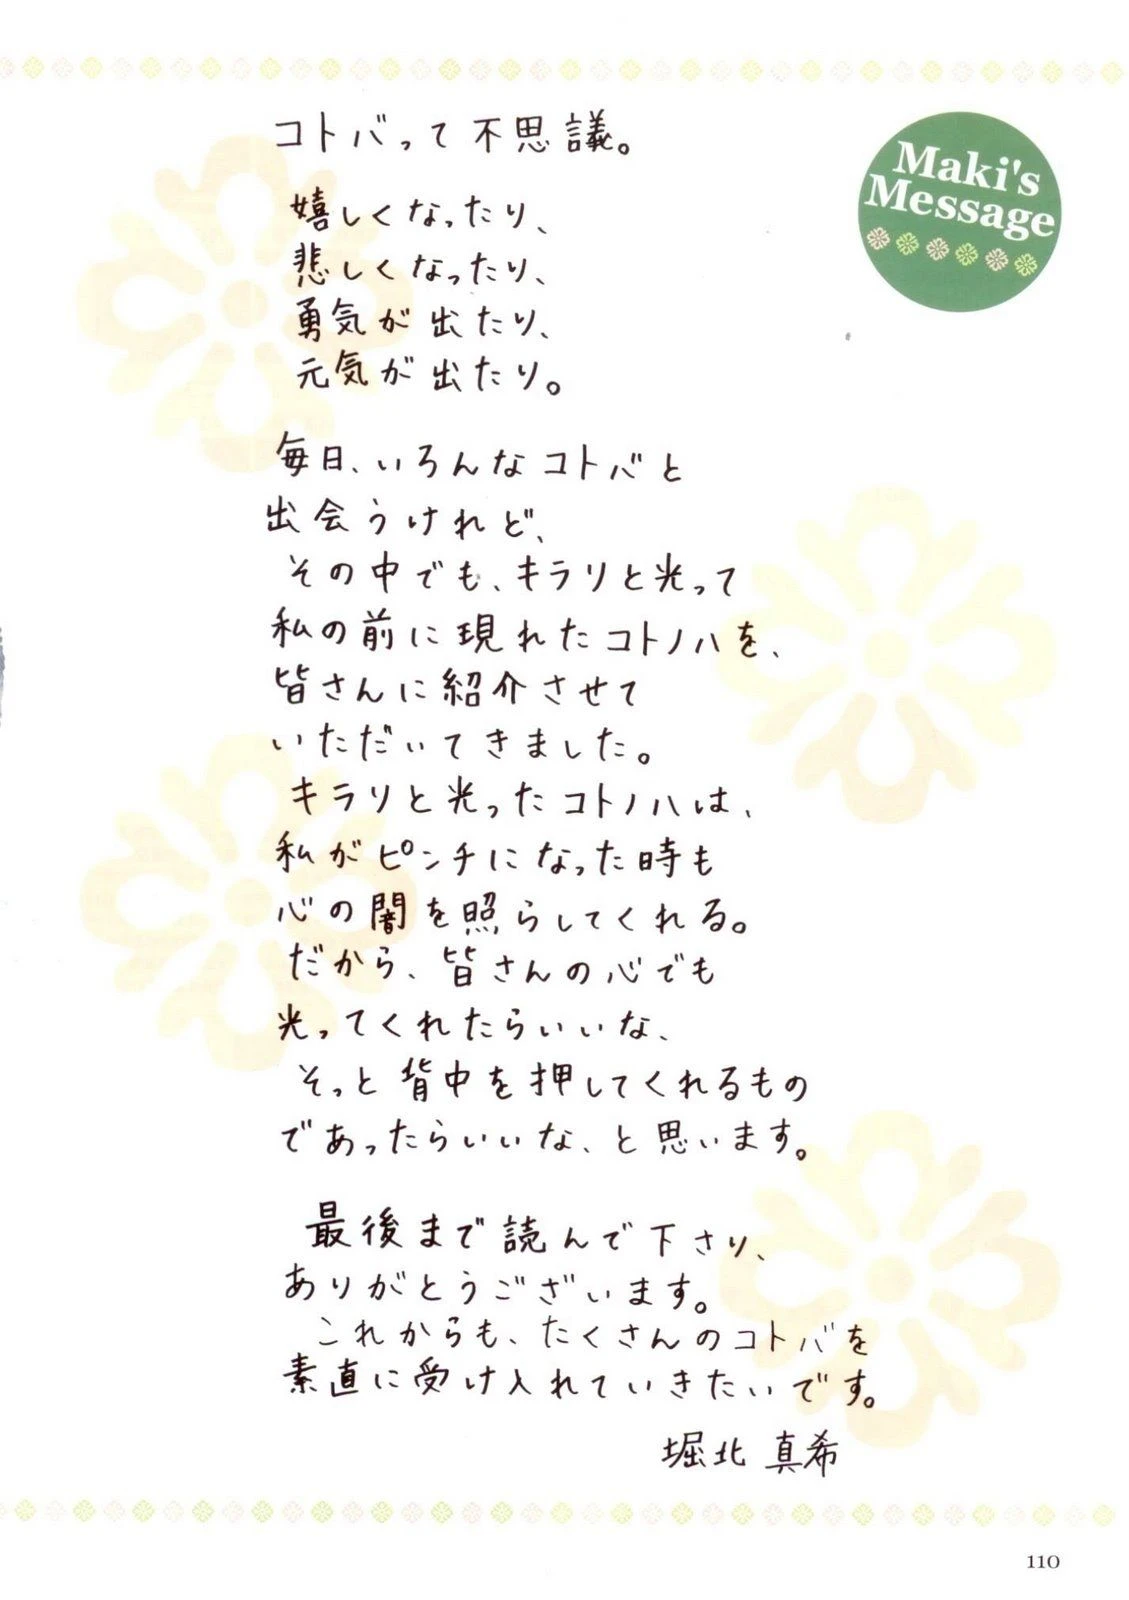 コトバって不思議。
Maki's
Message
嬉しくなったり、
悲しくなったり、
勇気が出たり、
元気が出たり。
毎日、いろんなコトバと
出会うけれど、
その中でも、キラリと光って
私の前に現れたコトノハを、
皆さんに紹介させて
いただいてきました。
キラリと光ったコトノハは、
私がピンチになった時も
心の闇を照らしてくれる。
だから、皆さんの心でも
光ってくれたらいいな、
そっと背中を押してくれるもの
であったらいいな、と思います。
最後まで読んで下さり、
ありがとうございます。
これからも、たくさんのコトバを
素直に受け入れていきたいです。
堀北 真希
110